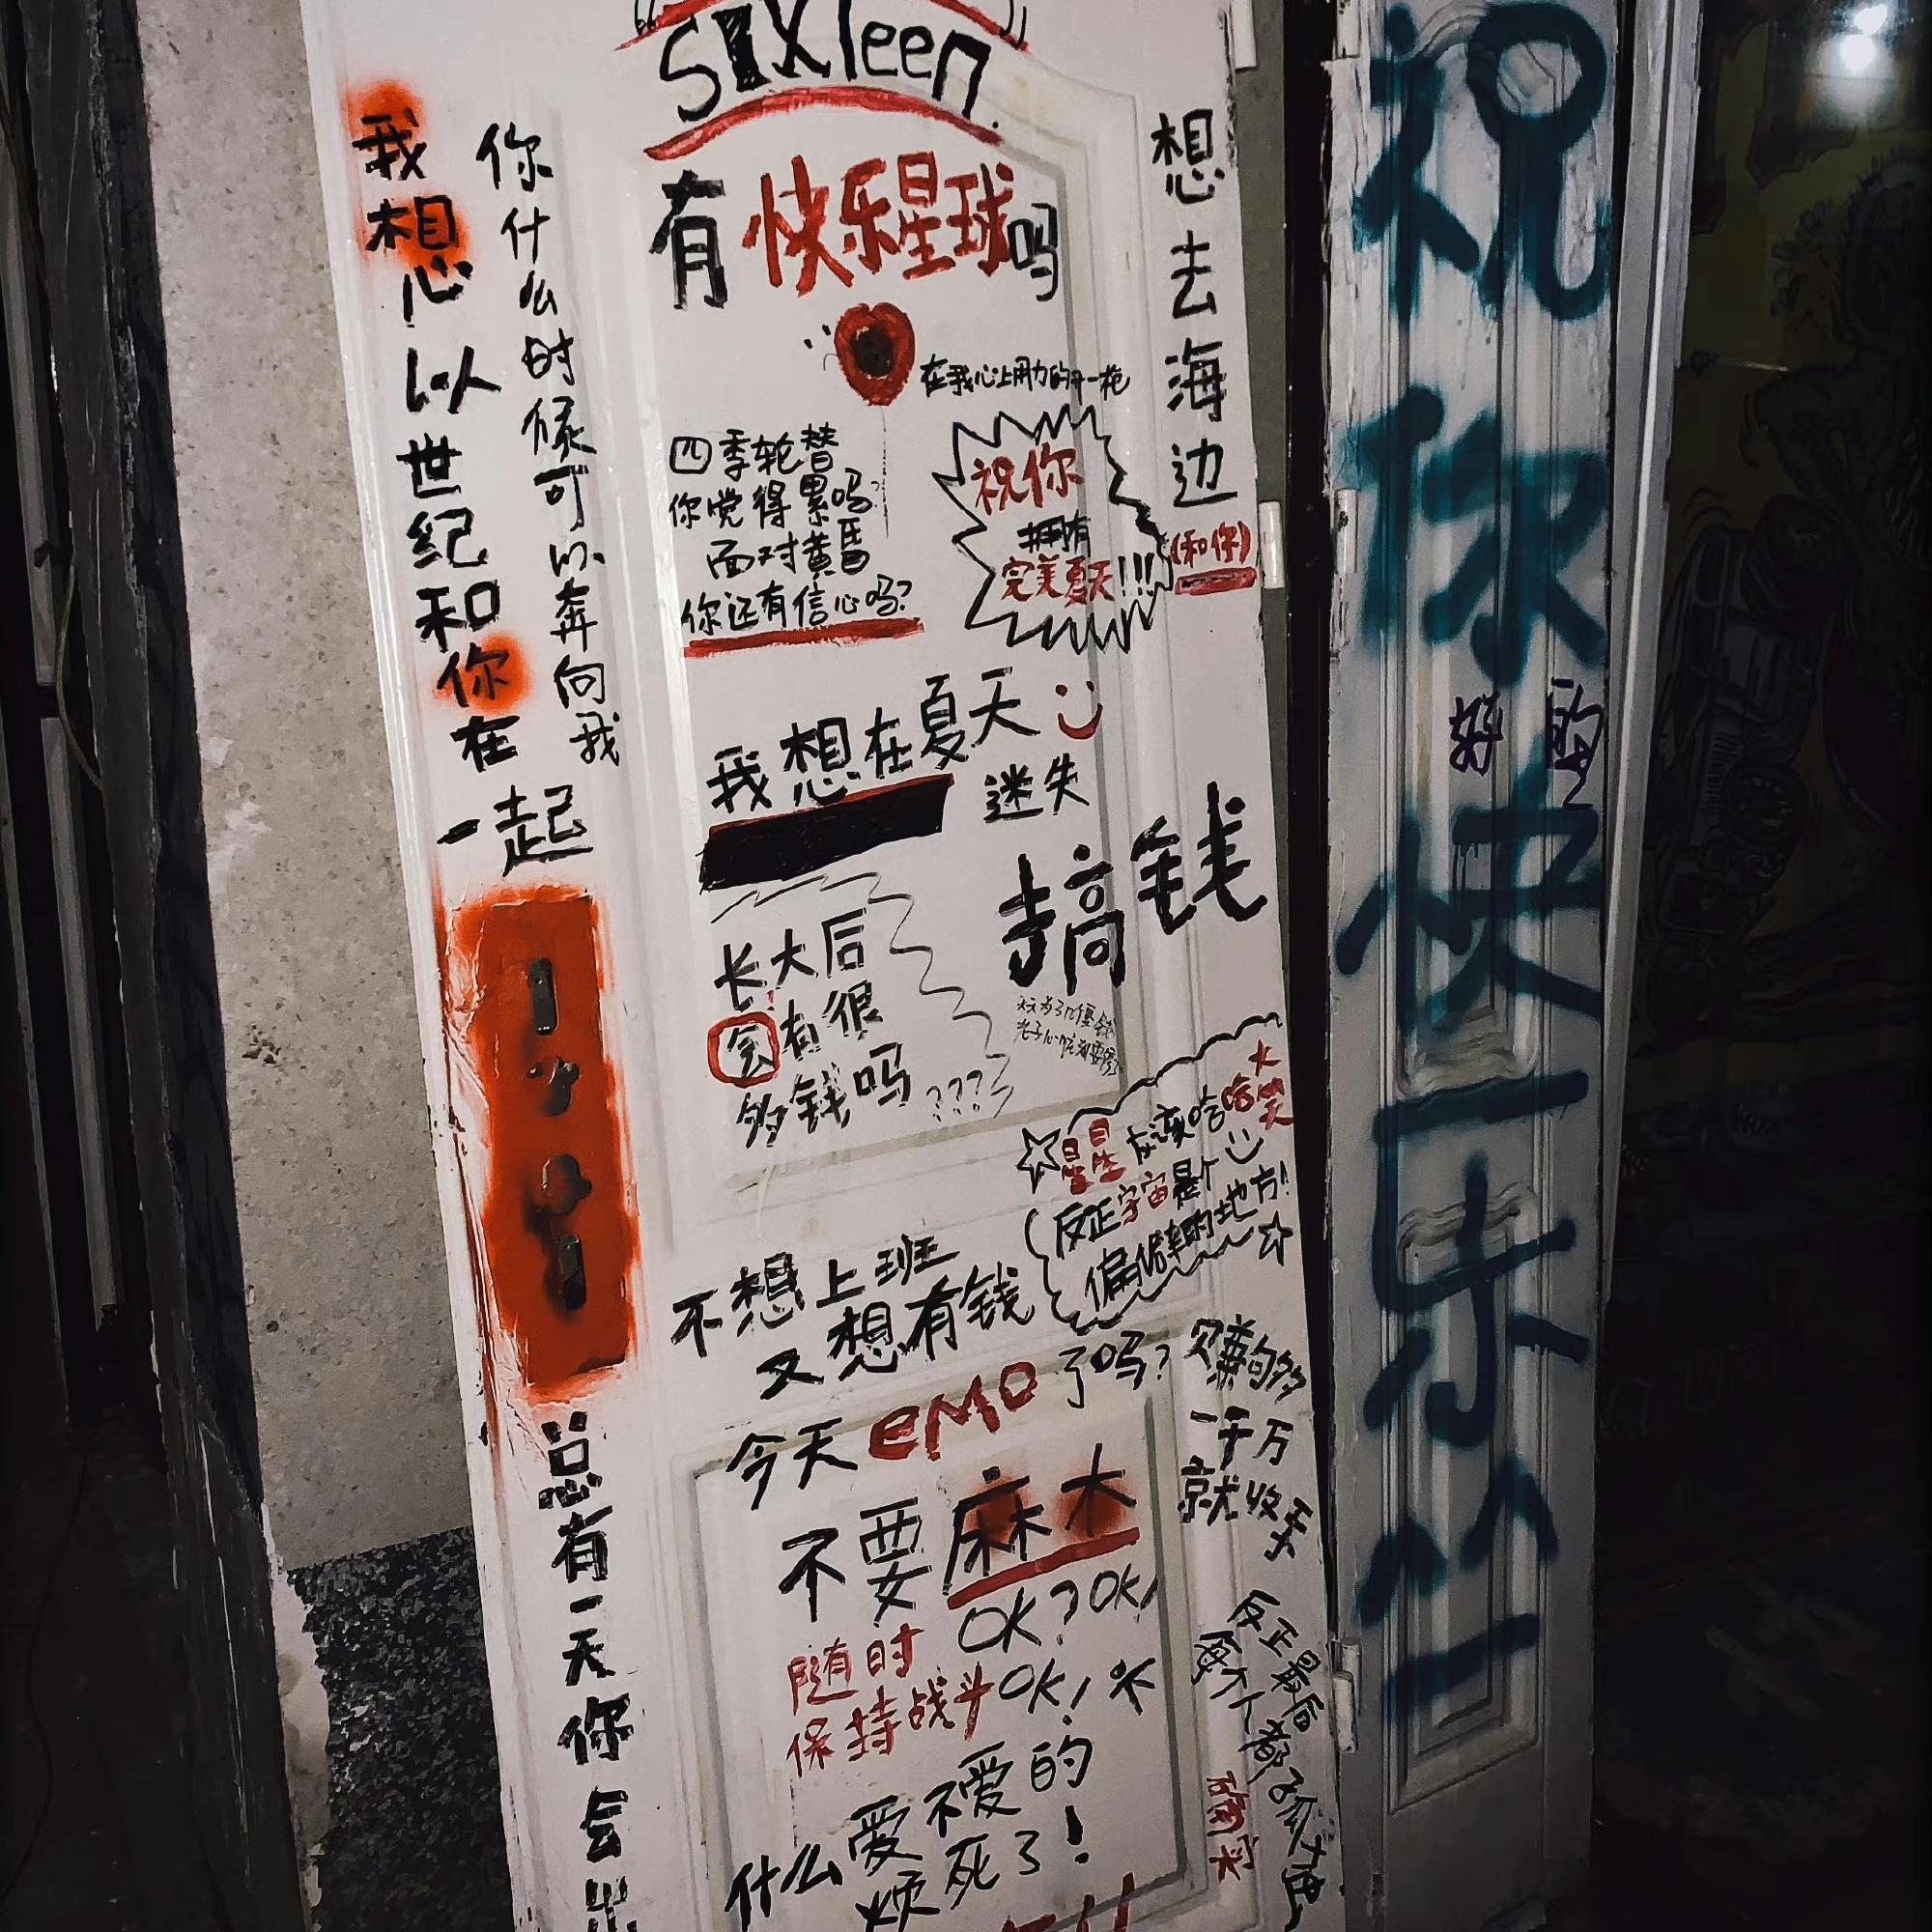 sixteen
我想心以世纪和你在一起
你什么时候可以奔向我
有快乐星球吗
在我心上用力的开一枪
四季轮替
你觉得累吗?
面对黄昏
你还有信心吗?
祝你
拥有
完美夏天!!!
想去海边
(和你)
我想在夏天
迷失
搞钱
长大后
会有很
多钱吗
???
星星应该哈哈大笑
反正宇宙是个
偏僻的地方!
不想上班
又想有钱
今天emo了吗?
赚够
一千万
就收手
不要麻木
OK?OK!
OK!
随时
保持战斗
什么爱不爱的
烦死了!
反正最后
总有一天你会出
祝你快乐
好的